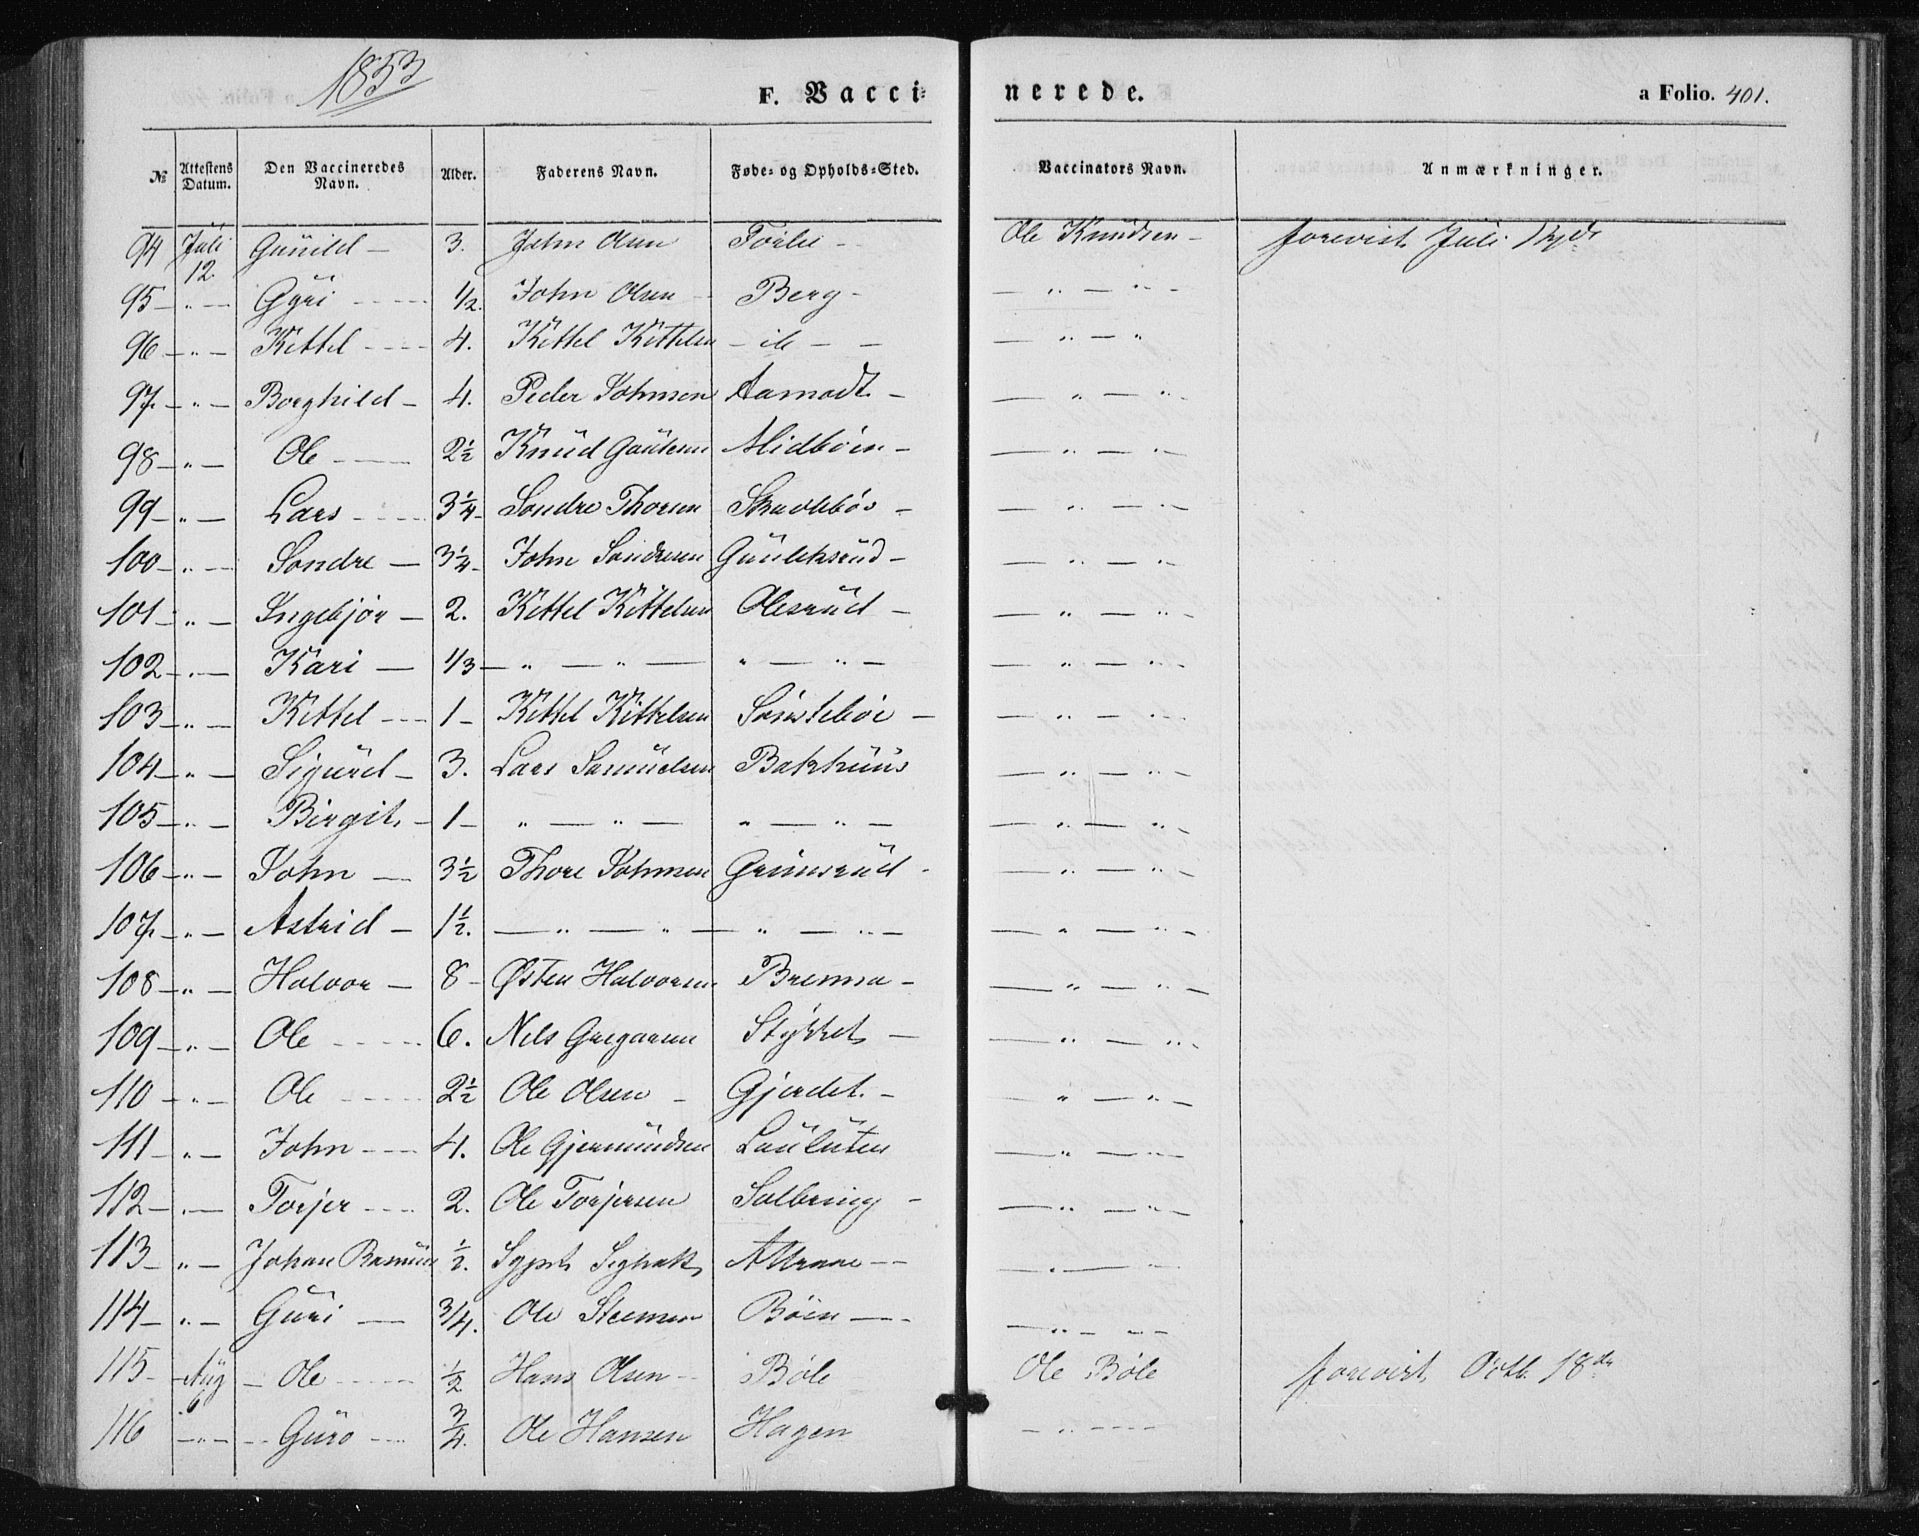 1853
F. Vacci- nerede. a Folio. 401.
№ Attestens Datum. Den Vaccineredes Navn. Alder. Faderens Navn. Føde- og Opholds-Sted. Vaccinators Navn. Anmærkninger.
94 Juli 12. Gunild - 3. John Olsen - Ole Knudsen - forevist Juli
95 - " - Gyri - 1/2. John Olsen - Berg - - " - " -
96 - " - Kittel - 4. Kittel Kittelsen - - - " - "
97 - " - Borghild - 4. Peder Johnsen Aamodt - - " - " -
98 - " - Ole - 2½ Knud Gautesen Midbøen - - " - " -
99 - " - Lars - 3¼ Sondre Thorsen - - " - " -
100 - " - Sondre - 3¼ John Sondresen Gunleksrud - - " - " -
101 - " - Ingebjør - 2. Kittel Kittelsen Olesrud - - " - " -
102 - " - Kari - 1/3 - " - " - " - " - - " - " -
103 - " - Kittel - 1 - Kittel Kittelsen Sønstebøe - - " - " -
104 - " - Sigurd - 3. Lars Samuelsen Bakhuus - " - " -
105 - " - Birgit - 1 - " - " - " - " - - " - " -
106 - " - John - 3½ Thore Johnsen Grimsrud - - " - " -
107 - " - Astrid - 1½. - " - " - " - " - - " - " -
108 - " - Halvor - 8 - Østen Halvorsen Brenna - - " - " -
109 - " - Ole - 6. Nels Gregarsen Stykket - - " - " -
110 - " - Ole - 2½ Ole Olsen - Gjerdet. - - " - " -
111 - " - John - 4. Ole Gjermundsen Lauluten - " - " -
112 - " - Torjer - 2. Ole Torjersen Solbring - - " - " -
113 - " - Johan ½. Attraae - - " - " -
114 - " - Guri - 3/4. Ole Bøen - - " - " -
115 - Aug 6 - Ole - ½ Hans Olsen - Bøle Ole Bøle forevist Octb. 18de
116 - " - Guro - ¾. Ole Hansen Hagen - " - -